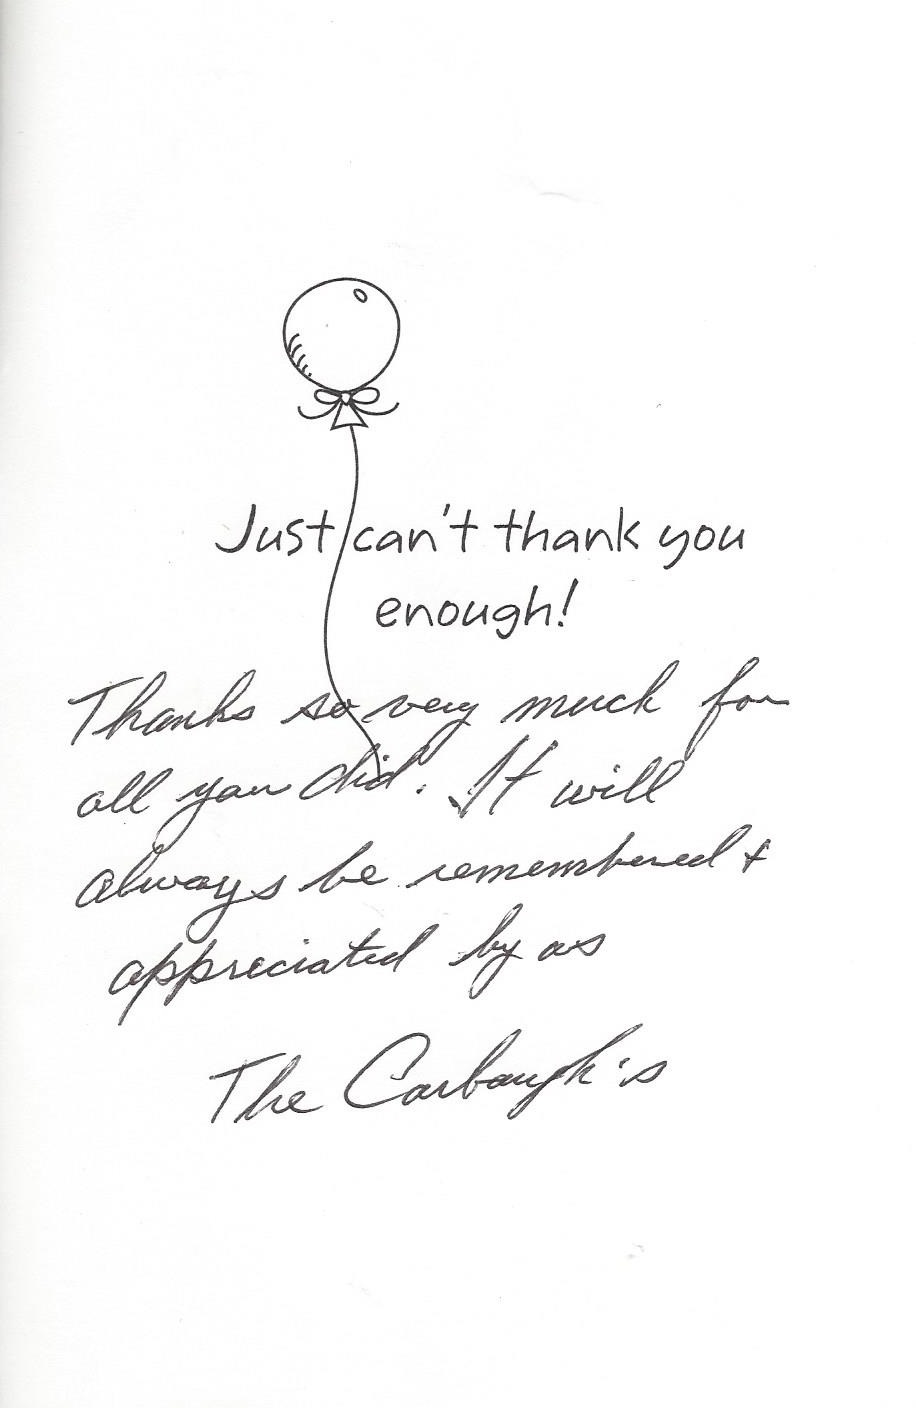 Just can't thank you
enough!
Thanks so very much for
all you did. It will
always be remembered +
appreciated by us
The Carbaugh's